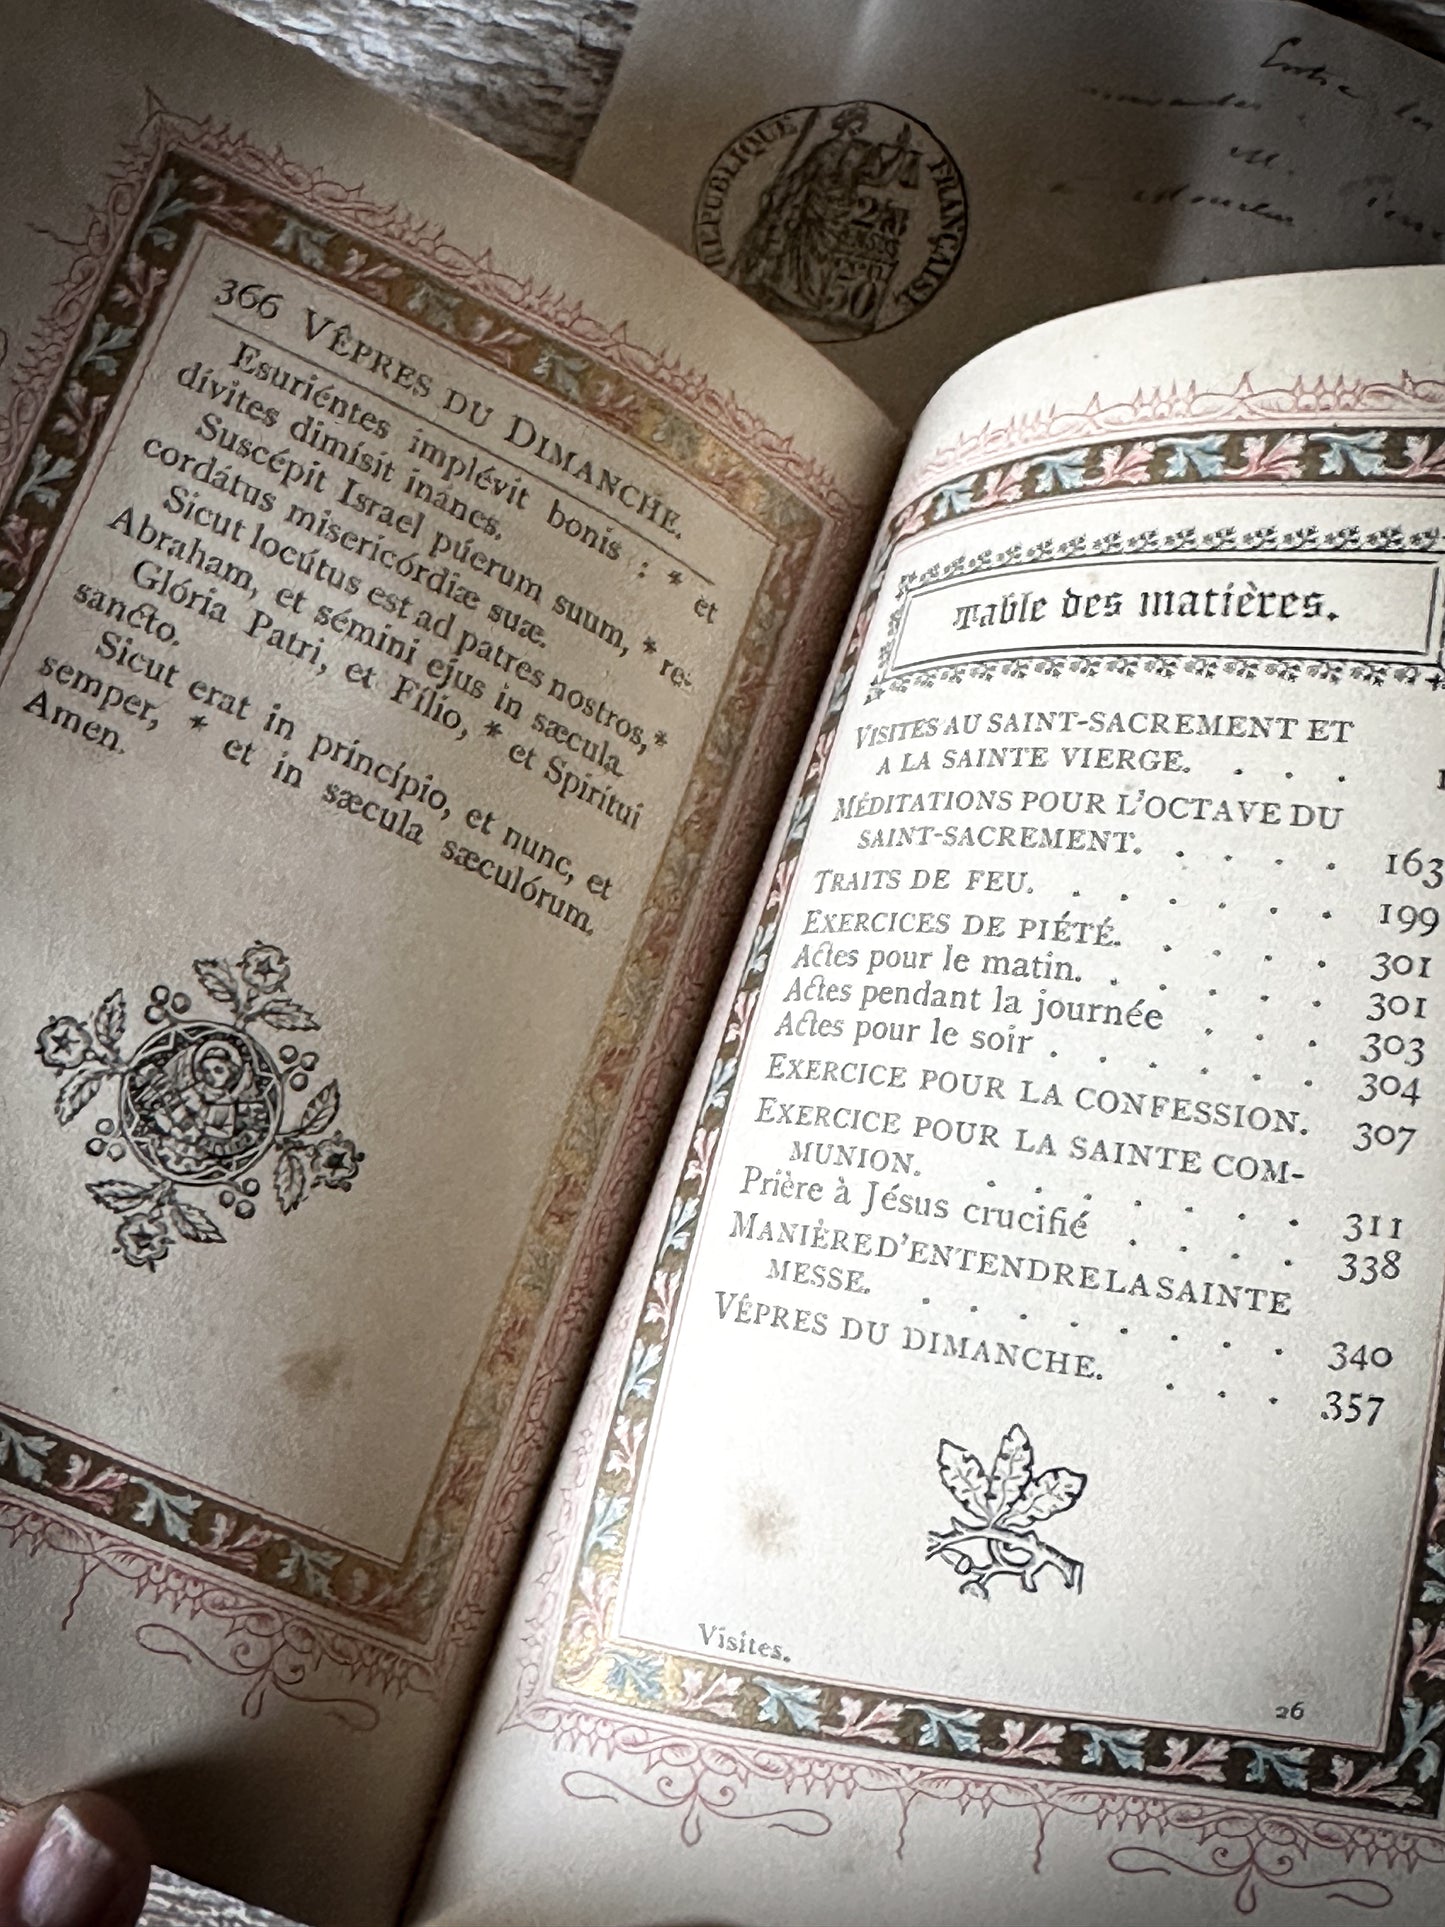 RÉPUBLIQUE FRANÇAISE
50
366 VÊPRES DU DIMANCHE.
Esuriéntes implévit bonis : * et
dívites dimísit inanes.
Suscépit Israel púerum suum, * re-
cordátus misericórdiæ suæ.
Sicut locútus est ad patres nostros, *
Abraham, et sémini ejus in sæcula.
Glória Patri, et Fílio, * et Spirítui
sancto.
Sicut erat in princípio, et nunc, et
semper, * et in sæcula sæculórum.
Amen.
Table des matières.
VISITES AU SAINT-SACREMENT ET
A LA SAINTE VIERGE. . . .
MÉDITATIONS POUR L'OCTAVE DU
SAINT-SACREMENT. . . . . 163
TRAITS DE FEU. . . . . . . 199
EXERCICES DE PIÉTÉ. . . . . 301
Actes pour le matin. . . . . . 301
Actes pendant la journée . . . 303
Actes pour le soir . . . . . . 304
EXERCICE POUR LA CONFESSION. 307
EXERCICE POUR LA SAINTE COM-
MUNION. . . . . . . . 311
Prière à Jésus crucifié . . . . 338
MANIÈRE D'ENTENDRE LA SAINTE
MESSE. . . . . . . . . 340
VÊPRES DU DIMANCHE. . . . 357
Visites.
26